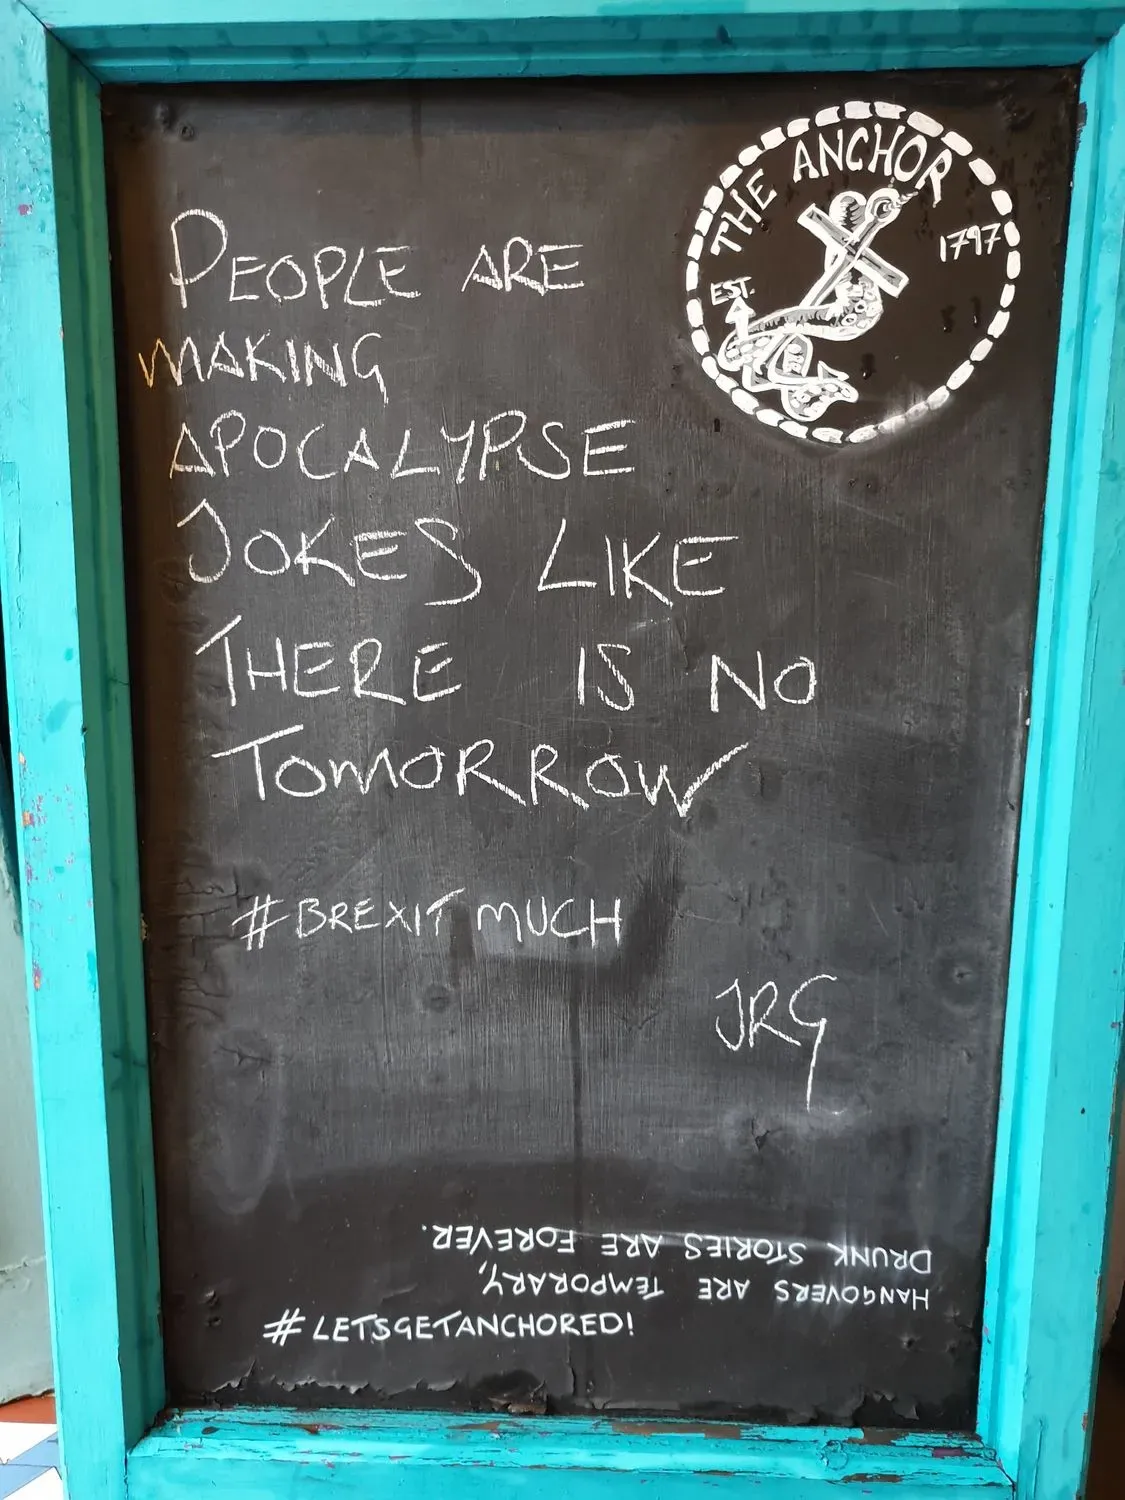 THE ANCHOR
EST. 1797
PEOPLE ARE
MAKING
APOCALYPSE
JOKES LIKE
THERE IS NO
TOMORROW
#BREXIT MUCH
JRG
HANGOVERS ARE TEMPORARY,
DRUNK STORIES ARE FOREVER.
#LETSGETANCHORED!